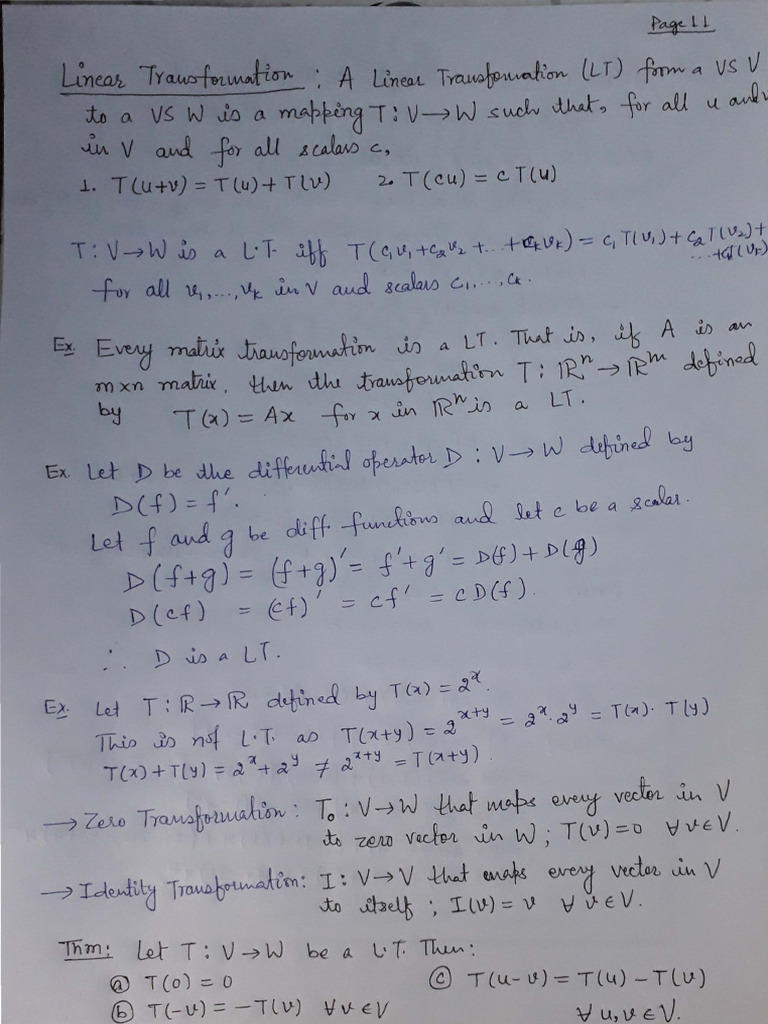 Page 11
Linear Transformation : A Linear Transformation (LT) form a VS V
to a VS W is a mapping T : V→W such that, for all u and v
in V and for all scalars c,
1. T(u+v) = T(u)+T(v) 2. T(cu) = cT(u)
T : V→W is a L.T. iff T(c₁v₁+c₂v₂+...+cₖvₖ) = c₁T(v₁)+c₂T(v₂)+
...+cₖT(vₖ)
for all v₁,...,vₖ in V and scalars c₁,...,cₖ.
Ex. Every matrix transformation is a LT. That is, if A is an
m×n matrix, then the transformation T : ℝⁿ→ℝᵐ defined
by T(x) = Ax for x in ℝⁿ is a LT.
Ex. Let D be the differential operator D : V→W defined by
D(f) = f'.
Let f and g be diff. functions and let c be a scalar.
D(f+g) = (f+g)' = f'+g' = D(f)+D(g)
D(cf) = (cf)' = cf' = cD(f).
∴ D is a LT.
Ex. Let T : ℝ→ℝ defined by T(x) = 2ˣ.
This is not L.T. as T(x+y) = 2ˣ⁺ʸ = 2ˣ.2ʸ = T(x). T(y)
T(x)+T(y) = 2ˣ+2ʸ ≠ 2ˣ⁺ʸ = T(x+y).
→ Zero Transformation : T₀ : V→W that maps every vector in V
to zero vector in W ; T(v)=0 ∀ v∈V.
→ Identity Transformation : I : V→V that maps every vector in V
to itself ; I(v) = v ∀ v∈V.
Thm: Let T : V→W be a L.T. Then :
ⓐ T(0) = 0 ⓒ T(u-v) = T(u) - T(v)
ⓑ T(-v) = -T(v) ∀ v∈V ∀ u,v∈V.